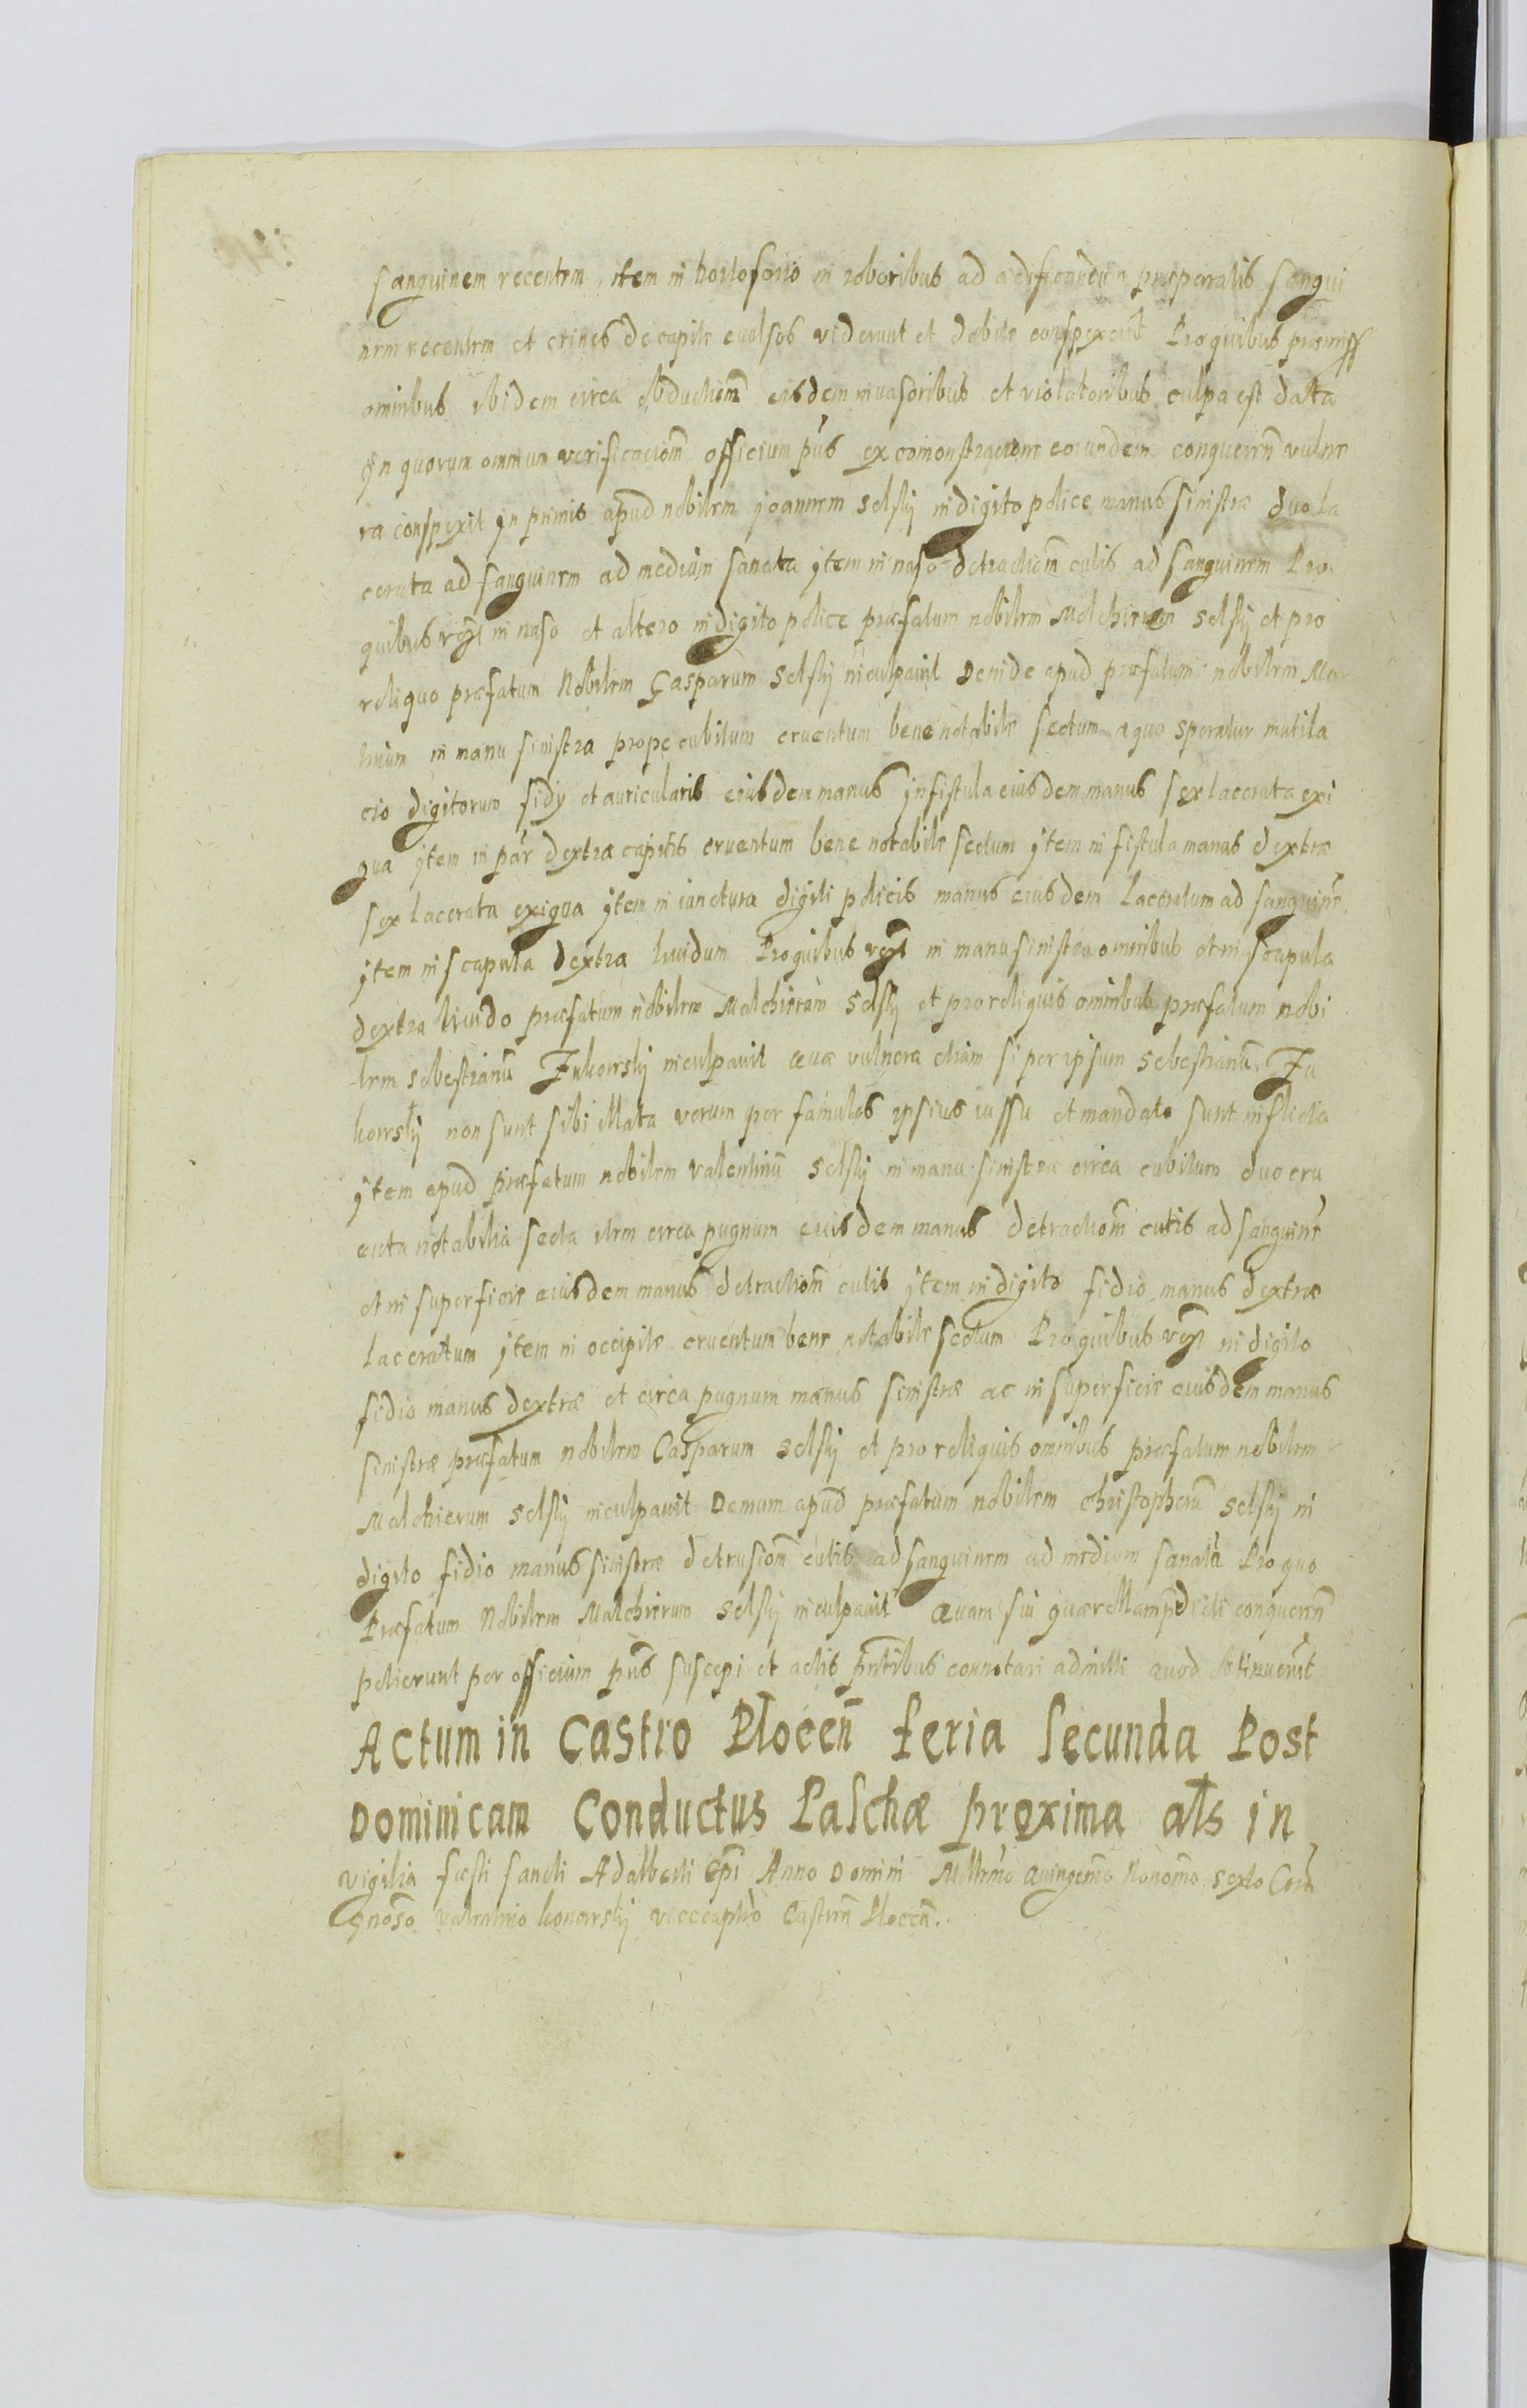 sanguinem recentem, item in hortoforio in roboribus ad ædificandum præparatis sangui
nem recentem et crines de capite euulsos viderunt et debite conspexerūt Pro quibus præmiss
omnibus ibidem circa obductionē eisdem inuasoribus et violatoribus culpa est data
In quorum omnium verificacionē officium pñs ex comonstracione eorundem conqueren̄ vulne
ra conspexit Jn primis apud nobilem joannem selsky in digito police manus sinistræ duo la
cerata ad sanguinem ad medium sanata jtem in naso detractionē cutis ad sanguinem Pro
quibus in naso et altero in digito police præfatum nobilem Melchirum selsky et pro
reliquo præfatum Nobilem Gasparum selsky inculpauit Deinde apud præfatum nobilem Mar
tinum in manu sinistra prope cubitum cruentum bene notabile sectum a quo speratur mutila
cio digitorum fidy et auricularis eiusdem manus jn fistula eiusdem manus sex lacerata exi
gua jtem in par dextra capitis cruentum bene notabile sectum jtem in fistula manus dextræ
sex lacerata exigua jtem in iunctura digiti policis manus eiusdem laceratum ad sanguinē
jtem in scapula dextra liuidum Pro quibus in manu sinistra omnibus et in scapula
dextra liuido præfatum nobilem Malchirum selsky et pro reliquis omnibus præfatum nobi
lem sebestianū Zukowsky inculpauit quæ vulnera etiam si per ipsum sebestianū Zu
kowsky non sunt sibi illata verum per famulos ipsius iussu et mandato sunt inflicta
jtem apud præfatum nobilem valentinū selsky in manu sinistra circa cubitum duo cru
enta notabilia secta item circa pugnum eiusdem manus detractionē cutis ad sanguinē
et in superficie eiusdem manus detractionē cutis jtem in digito fidio manus dextræ
laceratum jtem in occipite cruentum bene notabile sectum Pro quibus in digito
fidio manus dextræ et circa pugnum manus sinistræ ac in superficie eiusdem manus
sinistræ præfatum nobilem Casparum selsky et pro reliquis omnibus præfatum nobilem
Malchierum selsky inculpauit Demum apud præfatum nobilem christopherū selsky in
digito fidio manus sinistræ detrusionē cutis ad sanguinem ad medium sanata Pro quo
Præfatum Nobilem Malchierum selsky inculpauit Quam sui quærellam p̄dicti conqueren̄
petierunt per officium pñs suscepi et actis pñtibus connotari admitti quod obtinuerūt
Actum in Castro Plocen̄ feria secunda Post
Dominicam Conductus Paschæ proxima als in
vigilia fæsti sancti Adalberti Ep̄i Anno Domini Millmo quingenmo Nonomo sexto Corā
Gn̄oso valentino konarsky vicecaptō Castren̄ Plocen̄.